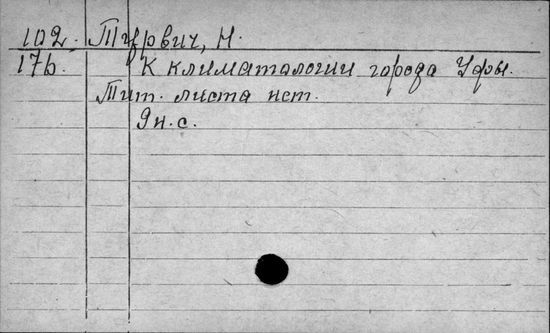 102. Гурвич, Н.
17b. К климаталогии города Уфы.
Тит. листа нет.
9н. с.